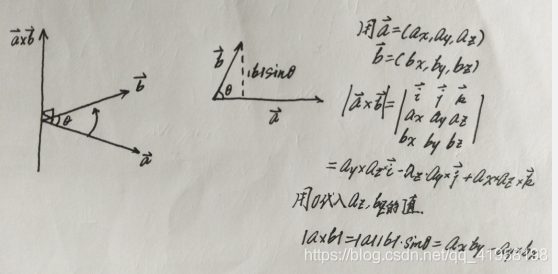 a⃗xb⃗
b⃗
θ
a⃗
b⃗
|b|sinθ
θ
a⃗
用 a⃗=(ax,ay,az)
b⃗=(bx,by,bz)
|a⃗×b⃗|=| i⃗ j⃗ k⃗
ax ay az
bx by bz |
=ay×az·i⃗-az·ay×j⃗+ax·az×k⃗
用0代入az,bz的值.
|axb|=|a||b|·sinθ=axby-ay×bx
https://blog.csdn.net/qq_41958438